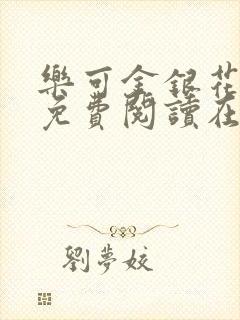 樂可金銀花
免費閱讀在
劉夢姣